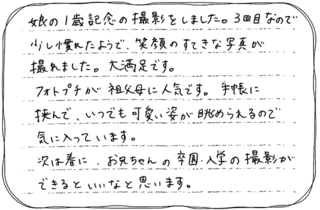 娘の1歳記念の撮影をしました。3回目なので
少し慣れたようで、笑顔のすてきな写真が
撮れました。大満足です。
フォトプチが祖父母に人気です。手帳に
挟んで、いつでも可愛い姿が眺められるので
気に入っています。
次は春に、お兄ちゃんの卒園・入学の撮影が
できるといいなと思います。